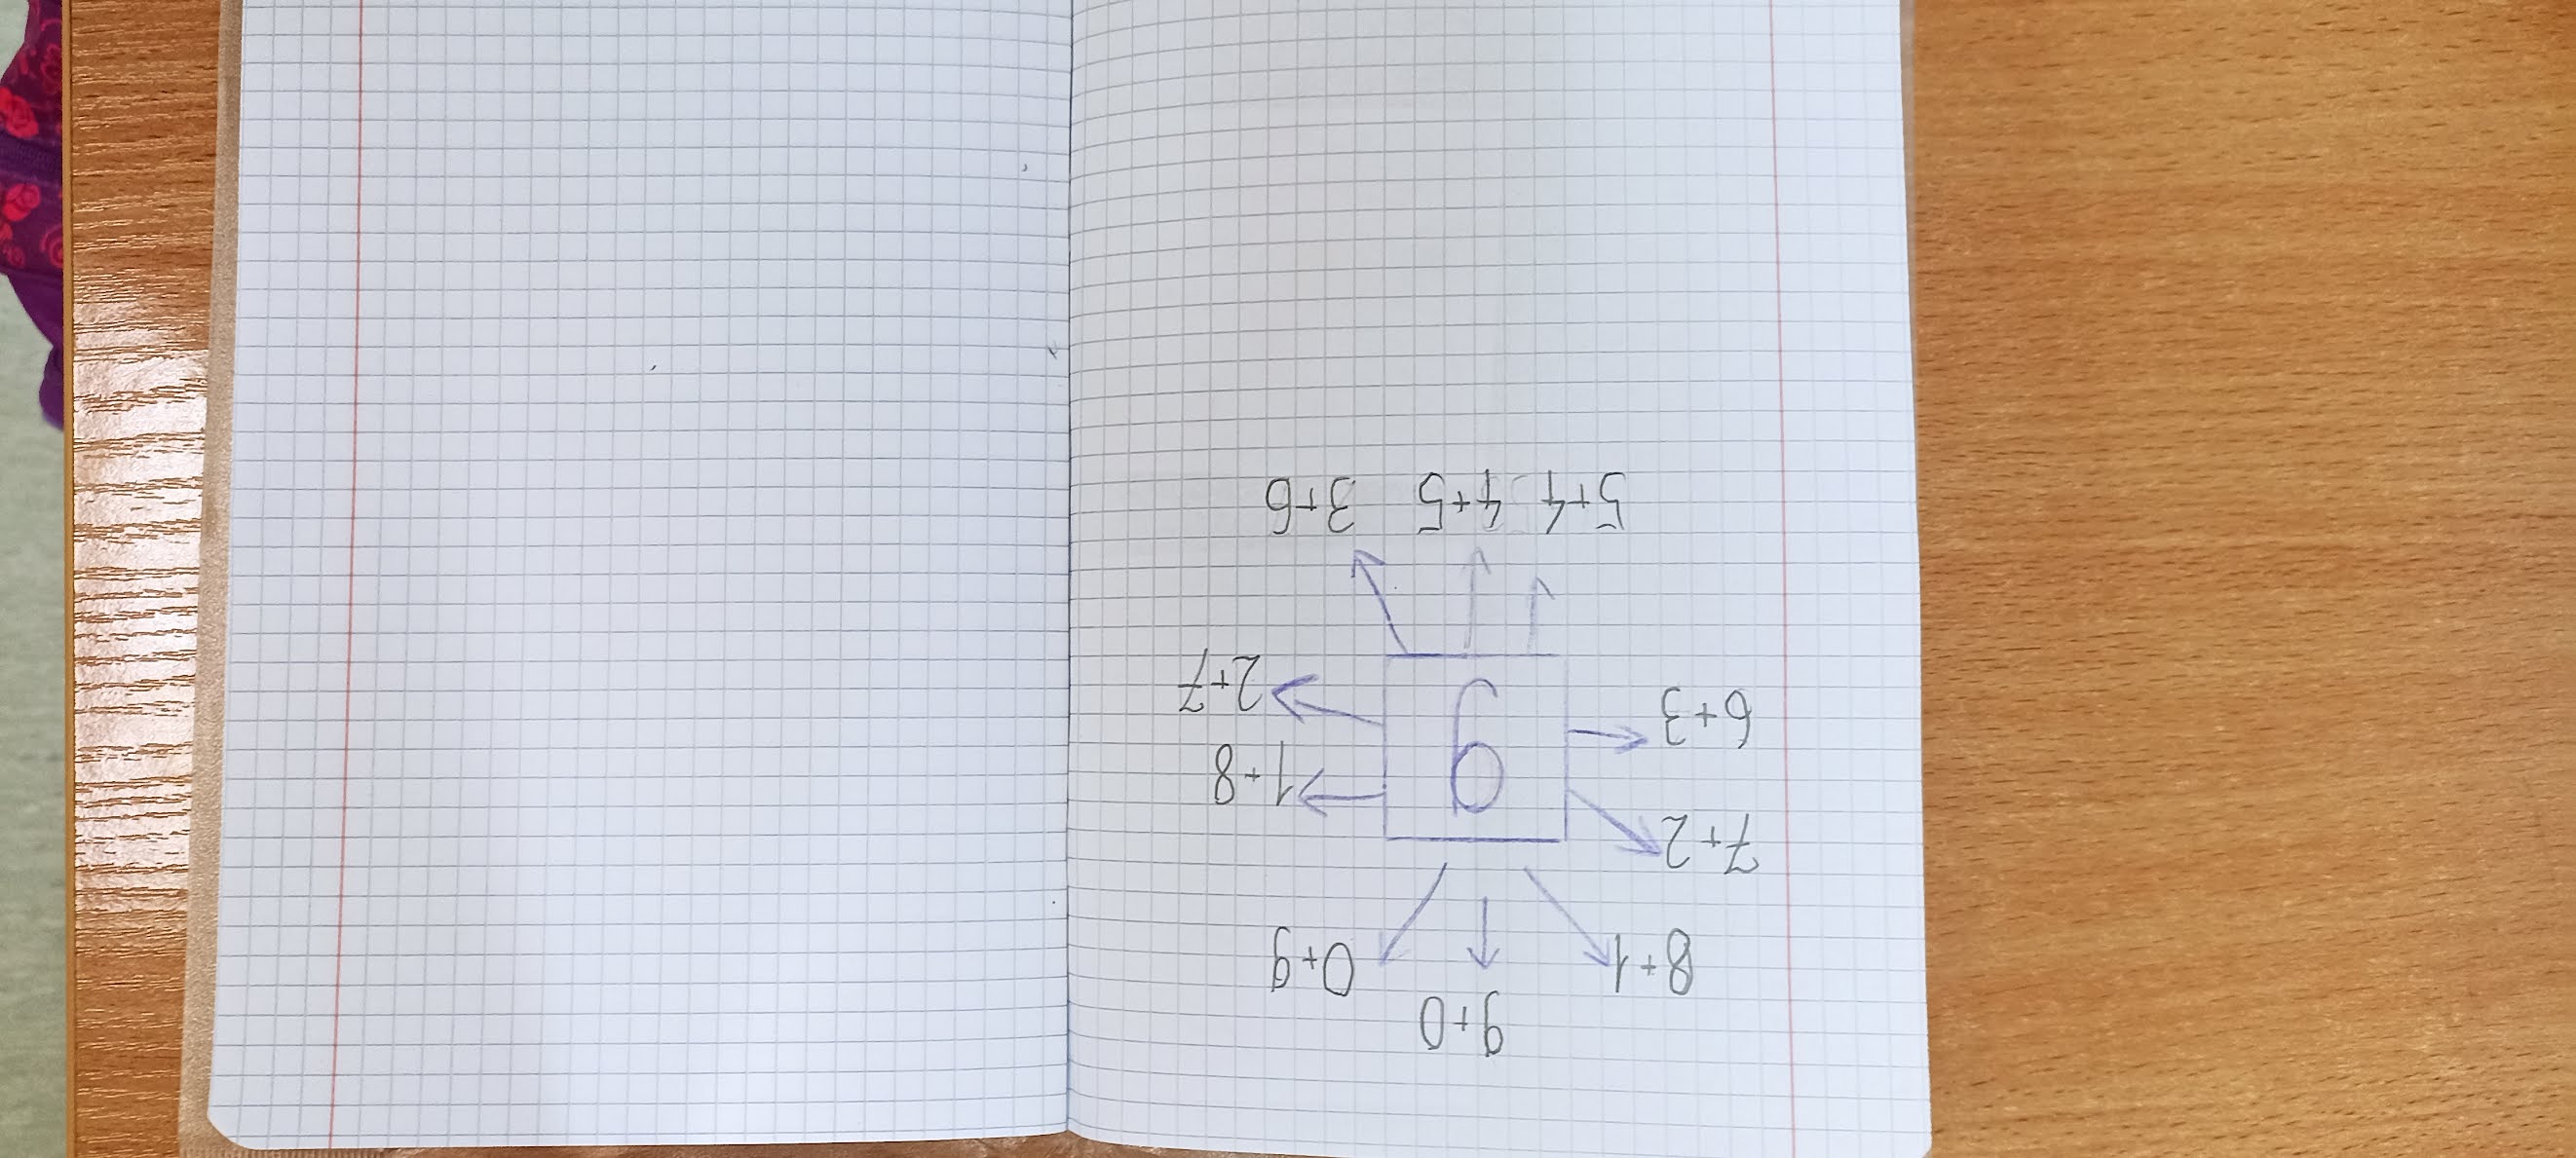 9+0
8+1 0+9
7+2 9 1+8
6+3 2+7
5+4 4+5 3+6